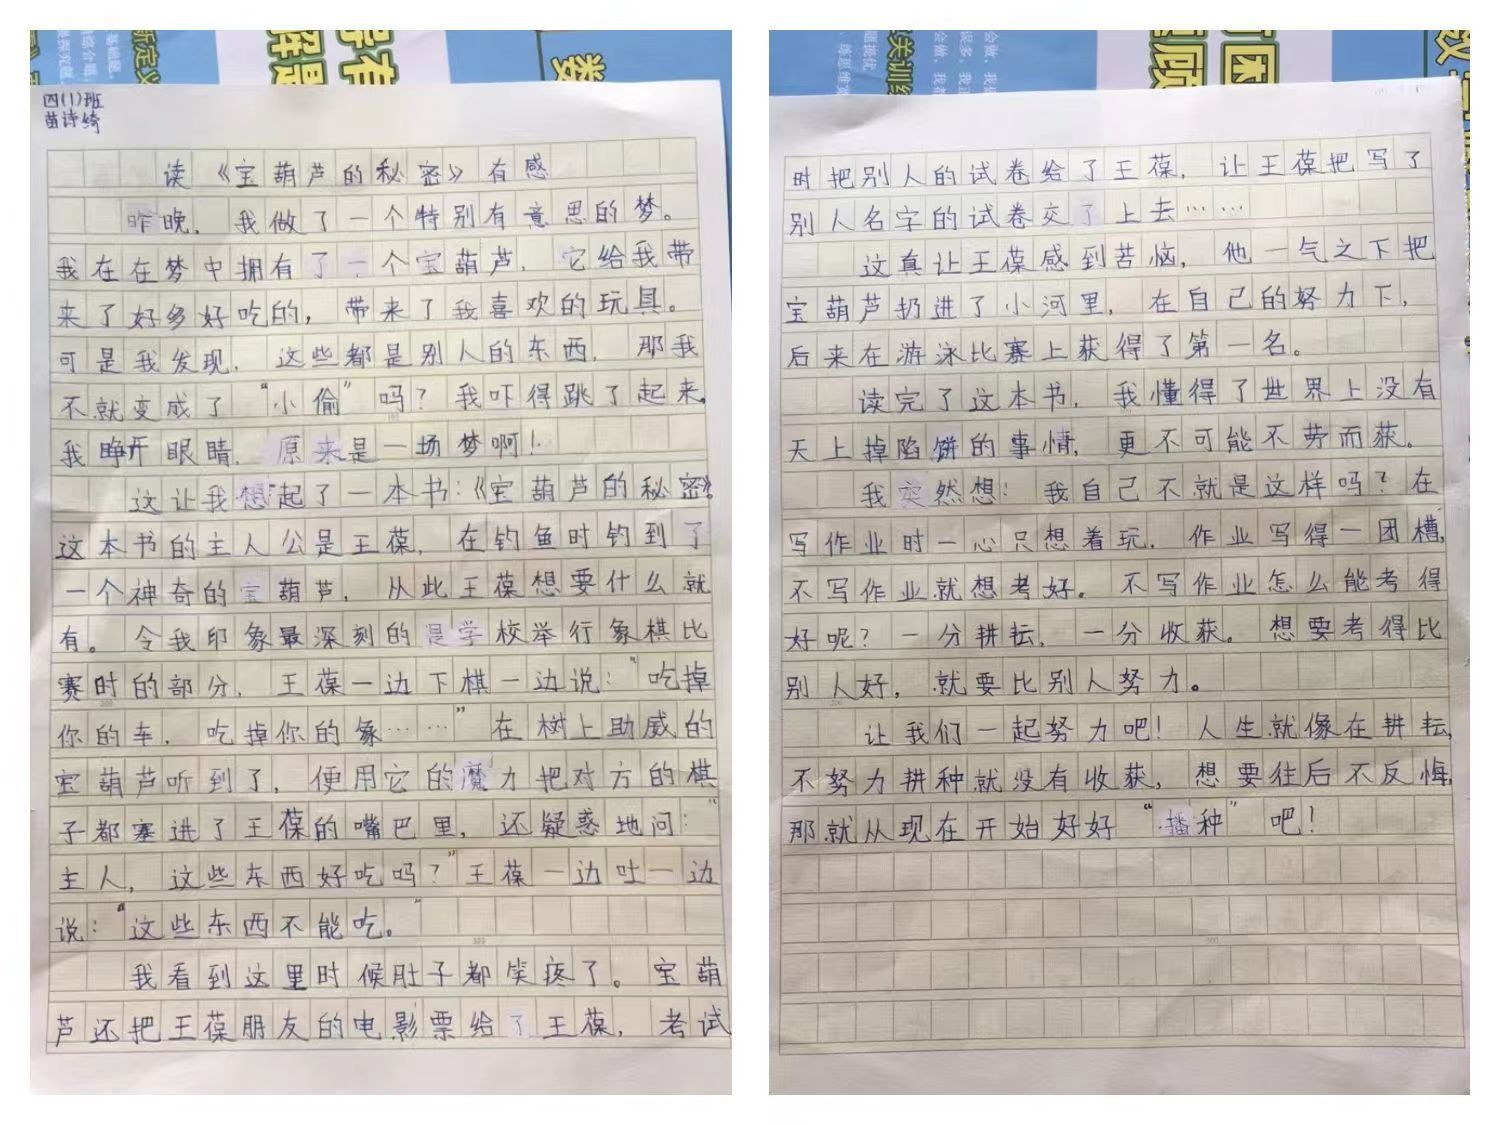 四(1)班
苗诗绮
读《宝葫芦的秘密》有感
昨晚，我做了一个特别有意思的梦。
我在在梦中拥有了一个宝葫芦，它给我带
来了好多好吃的，带来了我喜欢的玩具。
可是我发现，这些都是别人的东西，那我
不就变成了“小偷”吗？我吓得跳了起来。
我睁开眼睛，原来是一场梦啊！
这让我想起了一本书：《宝葫芦的秘密》。
这本书的主人公是王葆，在钓鱼时钓到了
一个神奇的宝葫芦，从此王葆想要什么就
有。令我印象最深刻的是学校举行象棋比
赛时的部分，王葆一边下棋一边说：“吃掉
你的车，吃掉你的象……”在树上助威的
宝葫芦听到了，便用它的魔力把对方的棋
子都塞进了王葆的嘴巴里，还疑惑地问：“
主人，这些东西好吃吗？”王葆一边吐一边
说：“这些东西不能吃。”
我看到这里时候肚子都笑疼了。宝葫
芦还把王葆朋友的电影票给了王葆，考试
时把别人的试卷给了王葆，让王葆把写了
别人名字的试卷交了上去……
这真让王葆感到苦恼，他一气之下把
宝葫芦扔进了小河里，在自己的努力下，
后来在游泳比赛上获得了第一名。
读完了这本书，我懂得了世界上没有
天上掉陷饼的事情，更不可能不劳而获。
我突然想：我自己不就是这样吗？在
写作业时一心只想着玩，作业写得一团糟，
不写作业就想考好。不写作业怎么能考得
好呢？一分耕耘，一分收获。想要考得比
别人好，就要比别人努力。
让我们一起努力吧！人生就像在耕耘，
不努力耕种就没有收获，想要往后不反悔，
那就从现在开始好好“播种”吧！
新定义
解题
有
数
关训练
题提优
困
顾